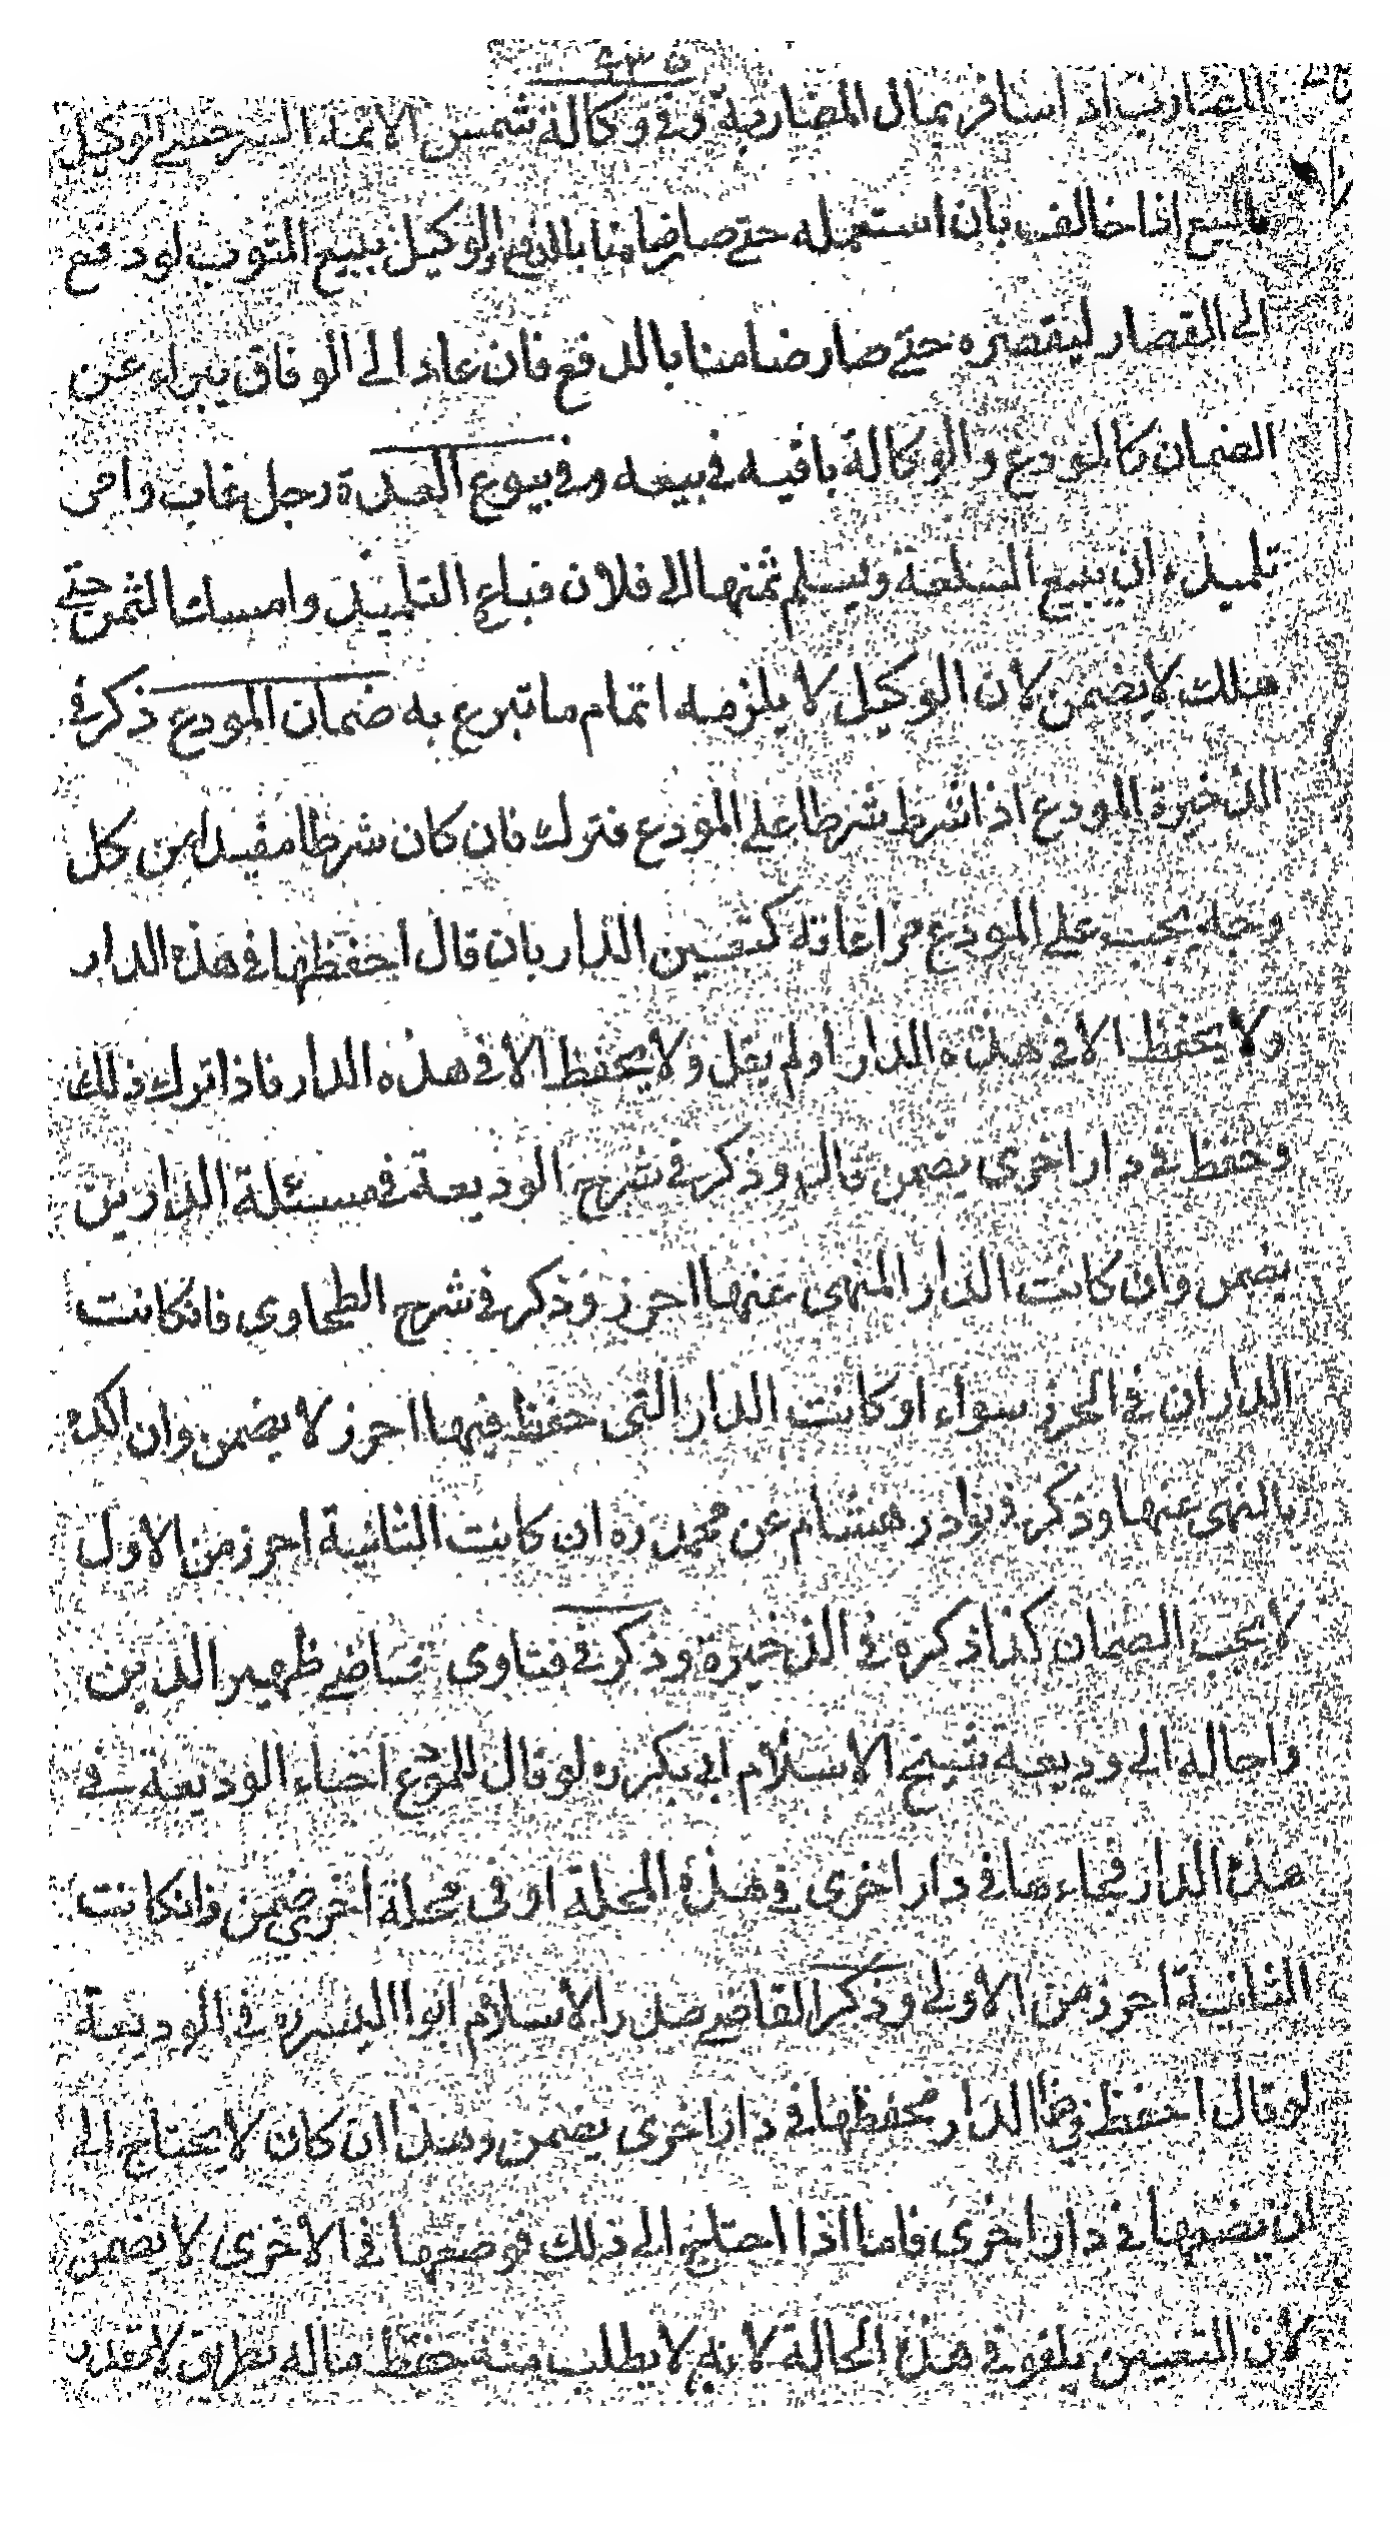 المضارب اذا سافر بمال المضاربة وفي وكالة شمس الائمة السرخسي الوكيل
بالبيع اذا خالف بان استعمله حتى صار ضامنا بالدفع والوكيل ببيع الثوب لو دفع
الى القصار ليقصره حتى صار ضامنا بالدفع فان عاد الى الوفاق يبراء عن
الضمان كالمودع والوكالة باقية في بيعه وفي بيوع العدة رجل غاب وامر
تلميذه ان يبيع السلعة ويسلم ثمنها الى فلان فباع التلميذ وامسك الثمن حتى
هلك لا يضمن لان الوكيل لا يلزمه اتمام ما تبرع به ضمان المودع ذكر في
الذخيرة المودع اذا شرط شرطا على المودع فترك فان كان شرطا مفيدا من كل
وجه يجب على المودع مراعاته كتعيين الدار بان قال احفظها في هذه الدار
ولا يحفظ الا في هذه الدار او لم يقل ولا يحفظ الا في هذه الدار فاذا ترك ذلك
وحفظ في دار اخرى يضمن قال وذكر في شرح الوديعة في مسئلة الدارين
يضمن وان كانت الدار المنهى عنها احرز وذكر في شرح الطحاوى فانكانت
الداران في الحرز سواء او كانت الدار التى حفظ فيها احرز لا يضمن وان اكد
بالنهى عنها وذكر في نوادر هشام عن محمد ره ان كانت الثانية احرز من الاول
لا يجب الضمان كذا ذكره في الذخيرة وذكر في فتاوى قاضي ظهير الدين
واحاله الى وديعة شيخ الاسلام ابي بكر ره لو قال للمودع اخباء الوديعة في
هذه الدار فخباءها في دار اخرى في هذه المحلة او في محلة اخرى ضمن وانكانت
الثانية احرز من الاولى وذكر القاضي صدر الاسلام ابو اليسر ره في الوديعة
لو قال احفظ في هذا الدار فحفظها في دار اخرى يضمن وهذا ان كان لا يحتاج الى
ان يضمها في دار اخرى فاما اذا احتاج الى ذلك فوضعها في الاخرى لا يضمن
لان التعيين يلغو في هذه الحالة لانه لا يطلب منه حفظ ماله بطريق لا يقدر